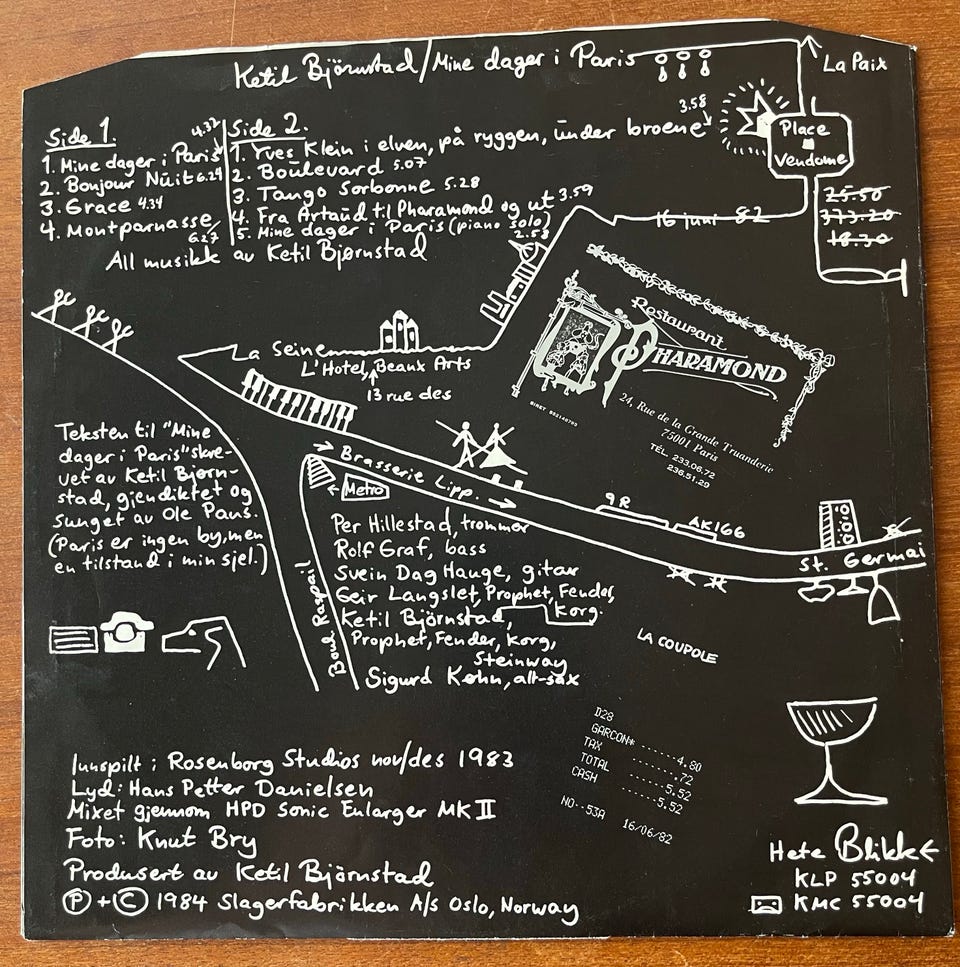 Ketil Björnstad/Mine dager i Paris
La Paix
Place
Vendome
25.50
373.20
18.30
16 juni 82
Side 1.
1. Mine dager i Paris 4.32
2. Bonjour Nuit 6.29
3. Grace 4.34
4. Montparnasse 6.27
Side 2.
1. Yves Klein i elven, på ryggen, under broene 3.58
2. Boulevard 5.07
3. Tango Sorbonne 5.28
4. Fra Artaud til Pharamond og ut 3.59
5. Mine dager i Paris (piano solo) 2.53
All musikk av Ketil Bjørnstad
La Seine
L'Hotel, Beaux Arts
13 rue des
Restaurant
PHARAMOND
24, Rue de la Grande Truanderie
75001 Paris
TÉL. 233.06.72
236.51.29
Brasserie Lipp.
Metro
9R
AK166
St. Germai
Boul Raspail
Teksten til "Mine
dager i Paris" skre-
vet av Ketil Bjørn-
stad, gjendiktet og
sunget av Ole Paus.
(Paris er ingen by, men
en tilstand i min sjel.)
Per Hillestad, trommer
Rolf Graf, bass
Svein Dag Hauge, gitar
Geir Langslet, Prophet, Fender,
Korg.
Ketil Björnstad,
Prophet, Fender, Korg,
Steinway
Sigurd Køhn, alt-sax
LA COUPOLE
D28
GARCON*........4.80
TAX .72
TOTAL ......5.52
CASH ......5.52
NO--53A 16/06/82
Innspilt: Rosenborg Studios nov/des 1983
Lyd: Hans Petter Danielsen
Mixet gjennom HPD Sonic Enlarger MK II
Foto: Knut Bry
Produsert av Ketil Björnstad
Ⓟ + Ⓒ 1984 Slagerfabrikken A/s Oslo, Norway
Hete Blikk
KLP 55004
KMC 55004